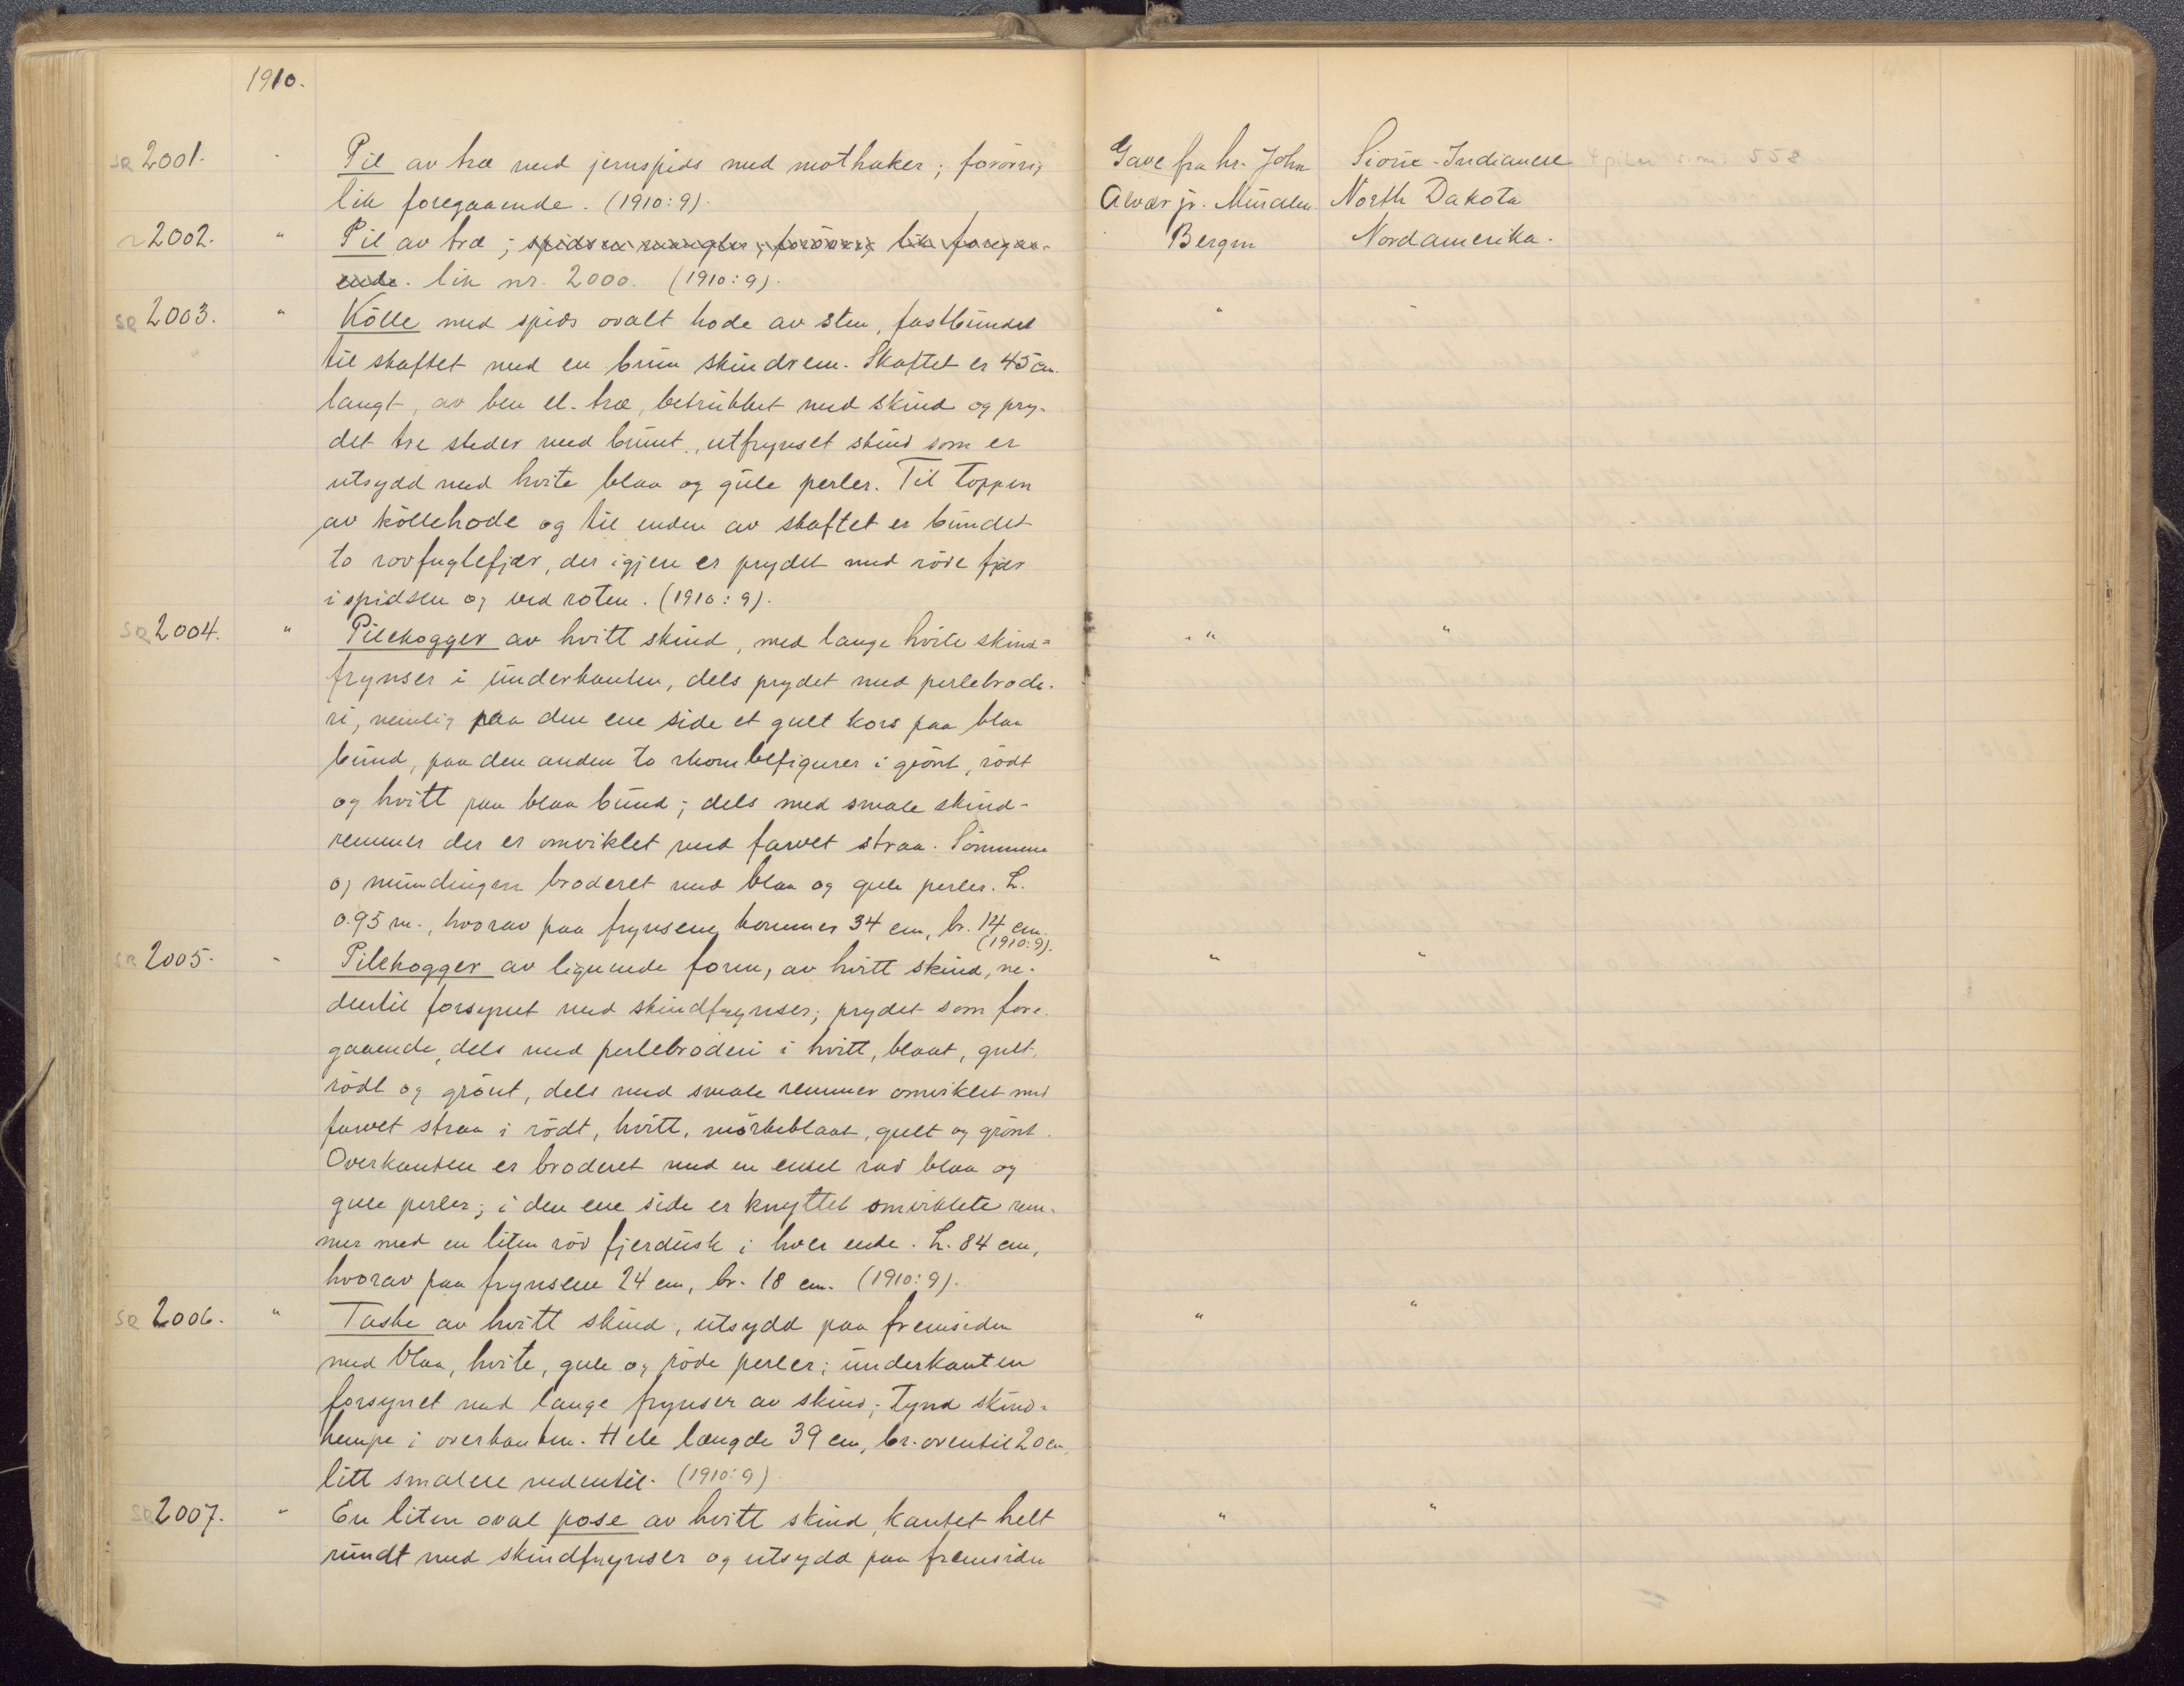 1910.
SA 2001. " Pil av træ med jernspids med mothaker; forövrig Gave fra hr. John Sioux-Indianere 4 piler s.m. 558
lik foregaaende. (1910:9). Alvær jr. North Dakota
2002. " Pil av træ; spidsen mangler; forövrig lik foregaa- Bergen Nordamerika.
ende. lik nr. 2000. (1910:9).
SA 2003. " Kölle med spids ovalt hode av sten, fastbundet " "
til skaftet med en brun skindrem. Skaftet er 45 cm.
langt, av ben el. træ, betrukket med skind og pry-
det tre steder med brunt, utfrynset skind som er
utsydd med hvite blaa og gule perler. Til toppen
av köllehode og til enden av skaftet er bundet
to rovfuglefjær, der igjen er prydet med röde fjær
i spidsen og ved roten. (1910:9).
SA 2004. " Pilekogger av hvitt skind, med lange hvite skind=
frynser i underkanten, dels prydet med perlebrode- " "
ri, nemlig paa den ene side et gult kors paa blaa
bund, paa den anden to rhombefigurer i grönt, rödt
og hvitt paa blaa bund; dels med smale skind-
remmer der er omviklet med farvet straa. Sömmene
og mundingen broderet med blaa og gule perler. L.
0.95 m., hvorav paa frynsene kommer 34 cm, br. 14 cm.
(1910:9).
SA 2005. " Pilekogger av lignende form, av hvitt skind, ne- " "
dentil forsynet med skindfrynser; prydet som fore-
gaaende, dels med perlebroderi i hvitt, blaat, gult,
rödt og grönt, dels med smale remmer omviklet med
farvet straa i rödt, hvitt, mörkeblaat, gult og grönt.
Overkanten er broderet med en enkel rad blaa og
gule perler; i den ene side er knyttet omviklete rem-
mer med en liten röd fjerdusk i hver ende. L. 84 cm,
hvorav paa frynsene 24 cm, br. 18 cm. (1910:9).
SA 2006. " Taske av hvitt skind, utsydd paa fremsiden " "
med blaa, hvite, gule og röde perler; underkanten
forsynet med lange frynser av skind; tynd skind-
hempe i overkanten. Hele længde 39 cm, br. oventil 20 cm,
litt smalere nedentil. (1910:9)
SA 2007. " En liten oval pose av hvitt skind, kantet helt " "
rundt med skindfrynser og utsydd paa fremsiden